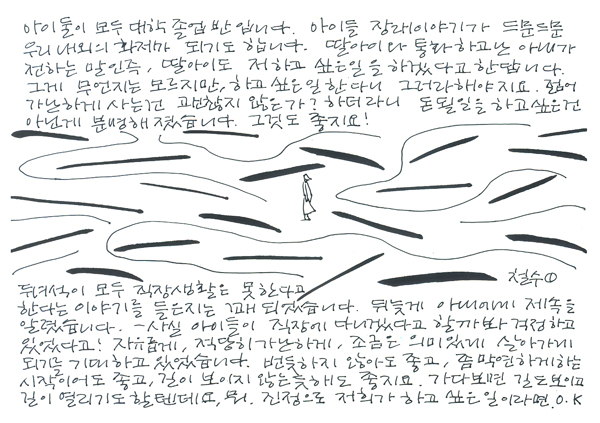 아이 둘이 모두 대학 졸업반입니다. 아이들 장래이야기가 드문드문
우리 내외의 화제가 되기도 합니다. 딸아이와 통화하고난 아내가
전하는 말인즉, 딸아이도 저 하고 싶은일을 하겠다고 한답니다.
그게 무언지는 모르지만, 하고 싶은일 한다니 그러라 해야지요. 혐의
가난하게 사는건 괜찮지 않은가? 하더라니 돈될일을 하고싶은건
아닌게 분명해졌습니다. 그것도 좋지요!
철수
두녀석이 모두 직장생활은 못한다고
한다는 이야기를 들은지는 꽤 되었습니다. 뒤늦게 아내에게 제속을
알렸습니다. -사실 아이들이 직장에 다니겠다고 할까봐 걱정하고
있었다고! 자유롭게, 적당히 가난하게, 조금은 의미있게 살아가게
되기를 기대하고 있었습니다. 번듯하지 않아도 좋고, 좀 막연하게하는
시작이어도 좋고, 길이 보이지 않는듯해도 좋지요. 가다보면 길도보이고
길이 열리기도 할텐데요, 뭐. 진정으로 저희가 하고 싶은일이라면. O.K